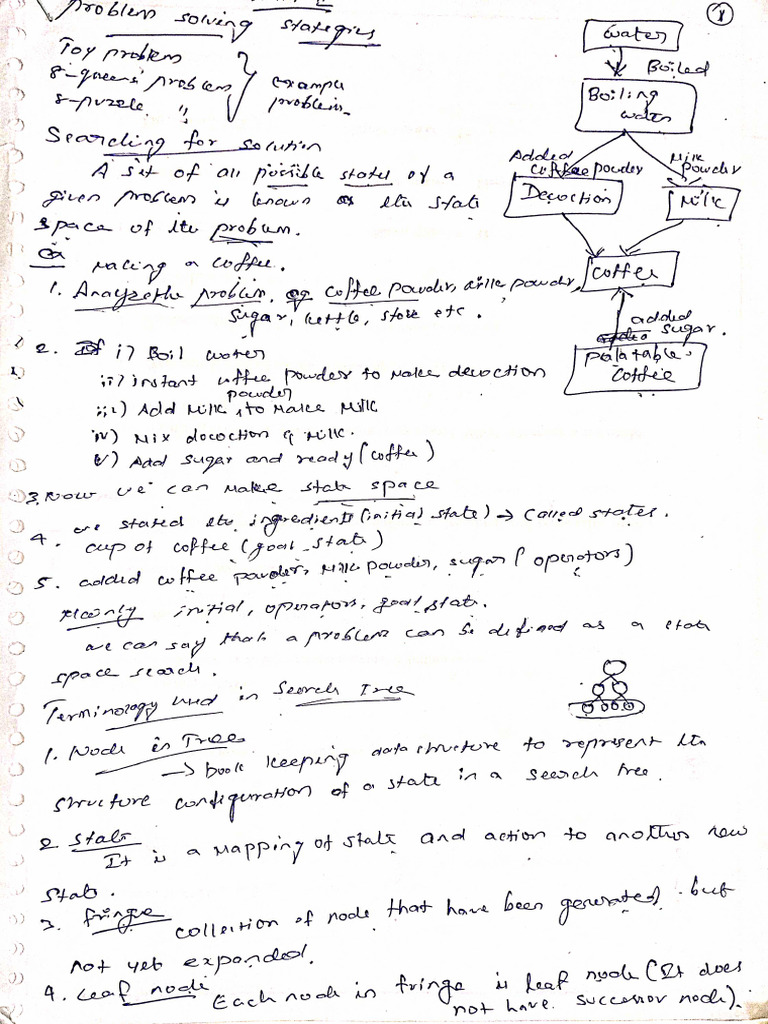 Problem solving stategies
1
Toy problem
8-queens problem } example
8-puzzle " problem.
Searching for solution
A set of all possible states of a
given problem is known as the state
space of the problem.
Ex Making a coffee.
1. Analyze the problem, eg coffee powder, milk powder,
sugar, kettle, stove etc.
2. i) Boil water
ii) instant coffee powder to make decoction
iii) Add Milk powder to Make Milk
iv) Mix decoction & Milk.
v) Add sugar and ready (coffee)
3. Now we can make state space
4. we stated the ingredients (initial state) → called states.
cup of coffee (goal state)
5. added coffee powder, milk powder, sugar (operators)
Mainly initial, operators, goal state.
we can say that a problem can be defined as a state
space search.
Terminology used in Search Tree
1. Node in Tree
→ book keeping data structure to represent the
structure configuration of a state in a search tree.
2. State
It is a mapping of state and action to another new
state.
3. fringe collection of node that have been generated but
not yet expanded.
4. Leaf node Each node in fringe is leaf node (It does
not have successor node).
water
Boiled
Boiling
water
Added
coffee powder
Milk
Powder
Decoction
Milk
Coffee
added
sugar.
palatable
coffee